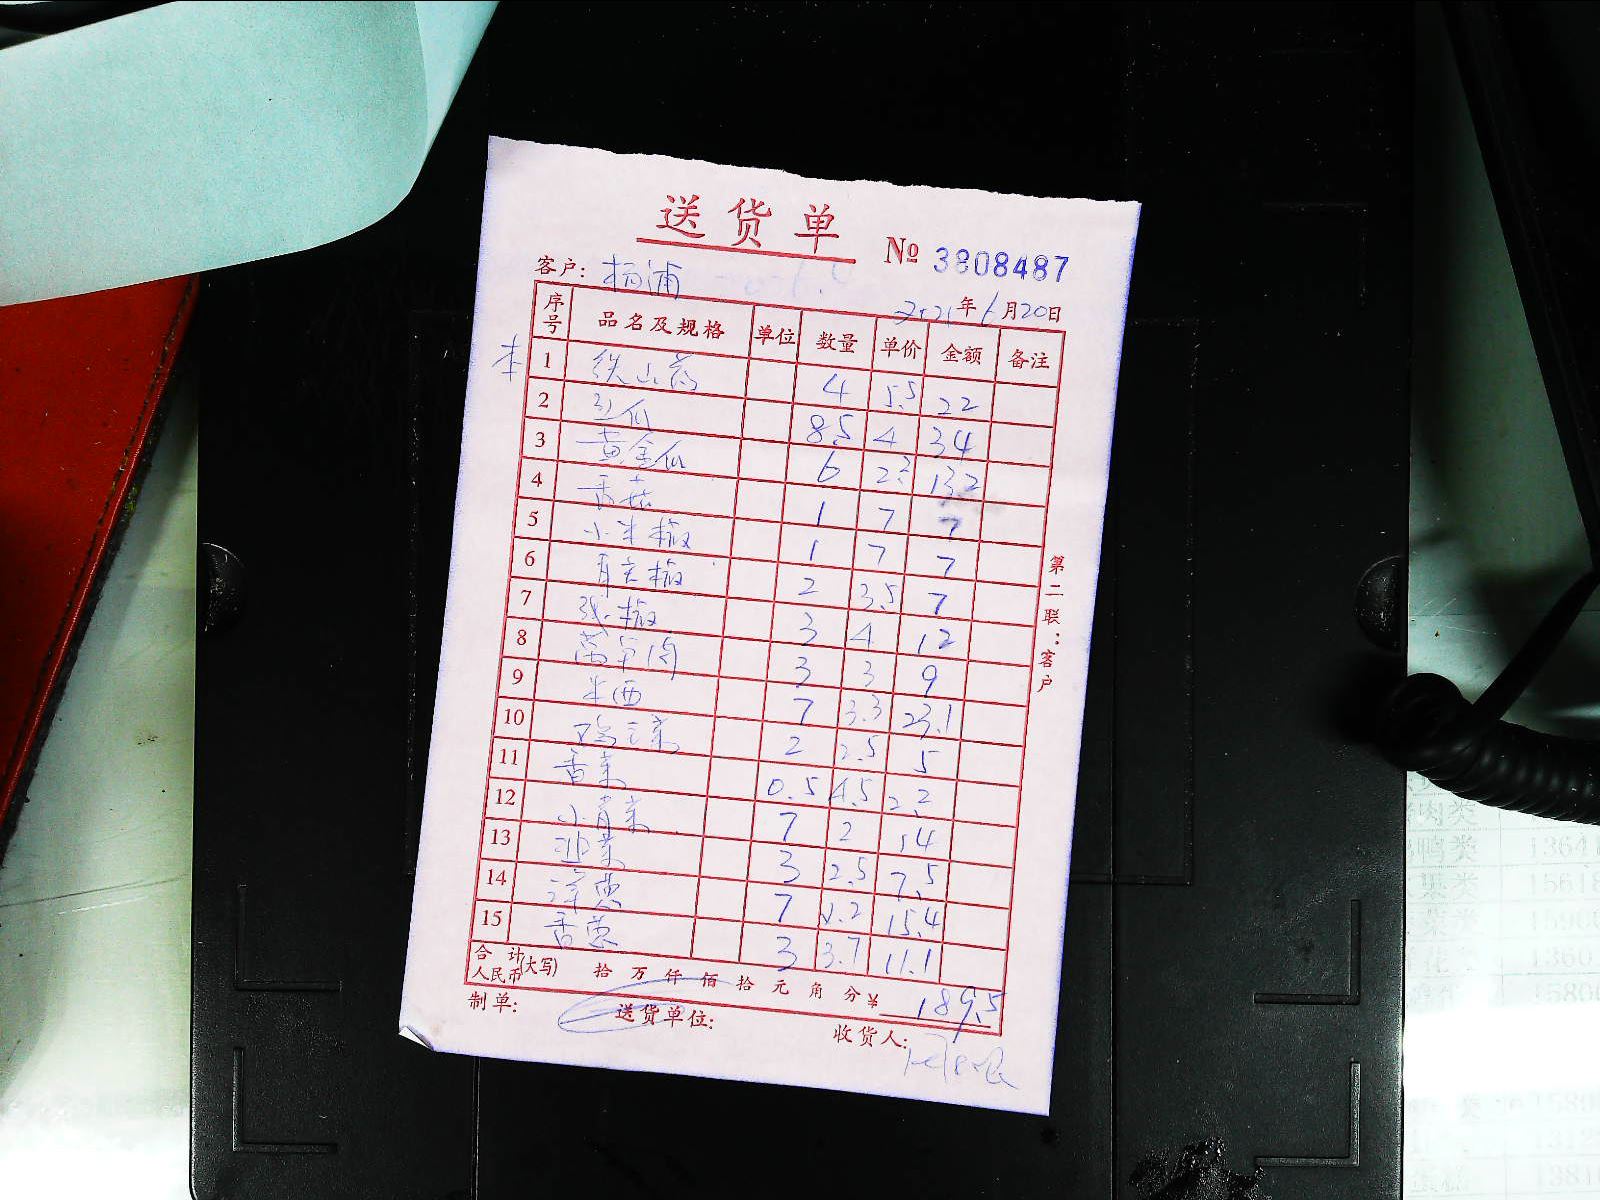 送货单
№ 3808487
客户: 杨浦
2021年6月20日
序号 品名及规格 单位 数量 单价 金额 备注
本
1 铁山药 4 5.5 22
2 8.5 4 34
3 黄金瓜 6 2.2 13.2
4 香菇 1 7 7
5 小米椒 1 7 7
6 2 3.5 7
7 线椒 3 4 12
8 3 3 9
9 7 3.3 23.1
10 2 2.5 5
11 香菜 0.5 4.5 2.2
12 小青菜 7 2 14
13 韭菜 3 2.5 7.5
14 洋葱 7 2.2 15.4
15 香葱 3 3.7 11.1
合计人民币(大写) 拾 万 仟 佰 拾 元 角 分 ¥ 189.5
制单: 送货单位: 收货人:
第二联:客户
肉类
鸭类 1364
类 1561